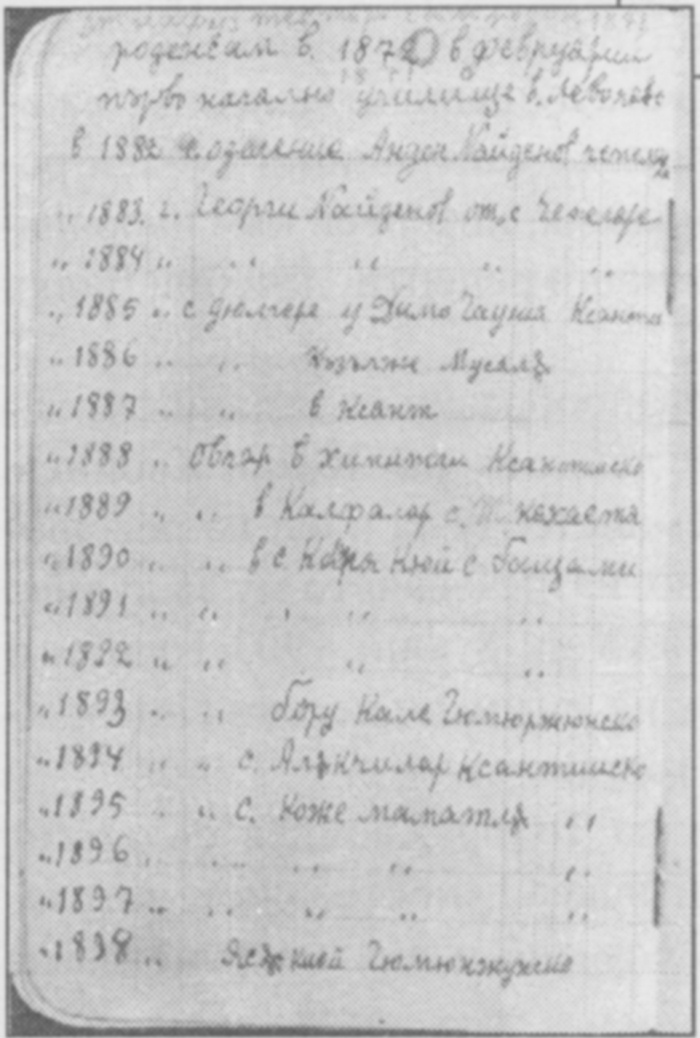 роденсам в. 1872 в февруарий
първо начално училище в. Левочево
в 1882 Андон Найденов чепел
„ 1883. г. Георги Найденов от с Чепеларе
„ 1884 „ „ „ „ „
„ 1885 „ с дюлгере у Димо Чауша Ксанти
„ 1886 „ „ Къзълже Мусалъ
„ 1887 „ „ в Ксант
„ 1888 „ Овчар в Ксантийско
„ 1889 „ „ в Калфалар с.
„ 1890 „ „ в с. Кары Кюй с
„ 1891 „ „ „ „ „
„ 1822 „ „ „ „
„ 1893 „ „ Бору Кале Гюмюржюнско
„ 1894 „ „ с. Алъкчилар Ксантийско
„ 1895 „ „ с. Коже маматлъ „
„ 1896 „ „ „ „ „
„ 1897 „ „ „ „ „
„ 1898 „ кюй Гюмюнжунско